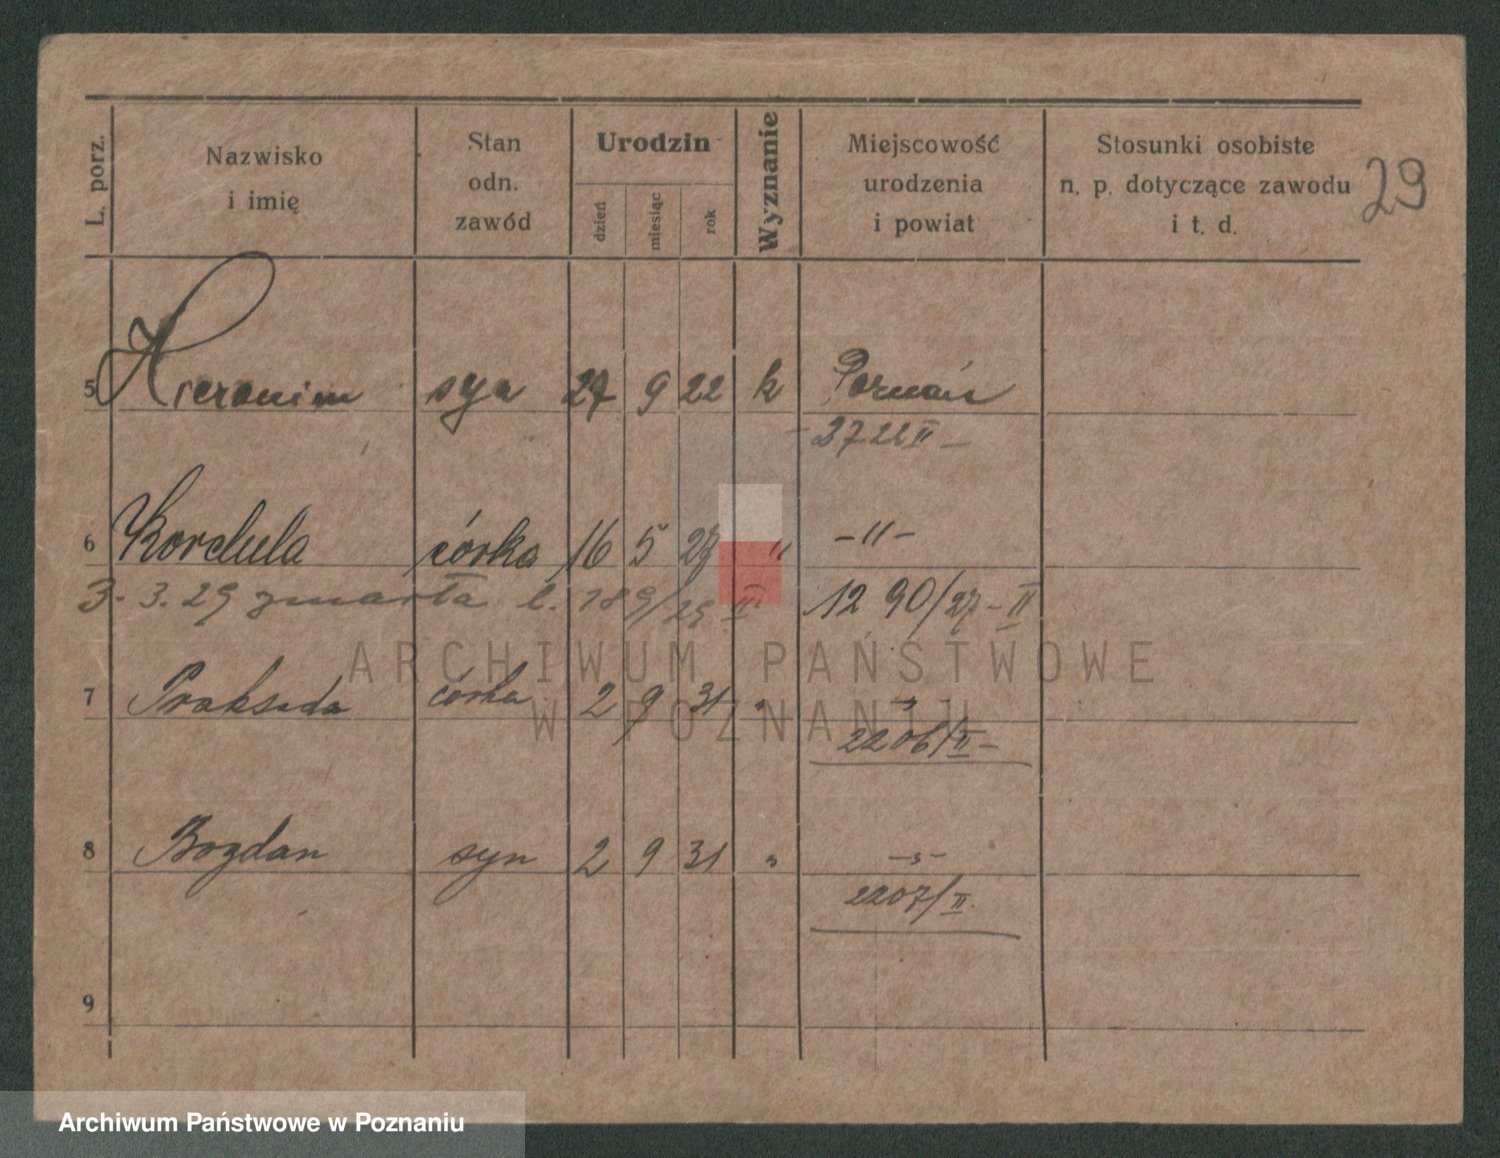 L. porz.
Nazwisko
i imię
Stan
odn.
zawód
Urodzin
dzień
miesiąc
rok
Wyznanie
Miejscowość
urodzenia
i powiat
Stosunki osobiste
n. p. dotyczące zawodu
i t. d.
29
5 Hieronim syn 27 9 22 k Poznań
3722 II -
6 Kordula córka 16 5 27 " -"-
3. 3. 29 zmarła l. 189/29 II 1290/27-II
7 Prakseda córka 2 9 31 " -"-
2206/II-
8 Bogdan syn 2 9 31 " -"-
2207/II.
9
ARCHIWUM PAŃSTWOWE
W POZNANIU
Archiwum Państwowe w Poznaniu